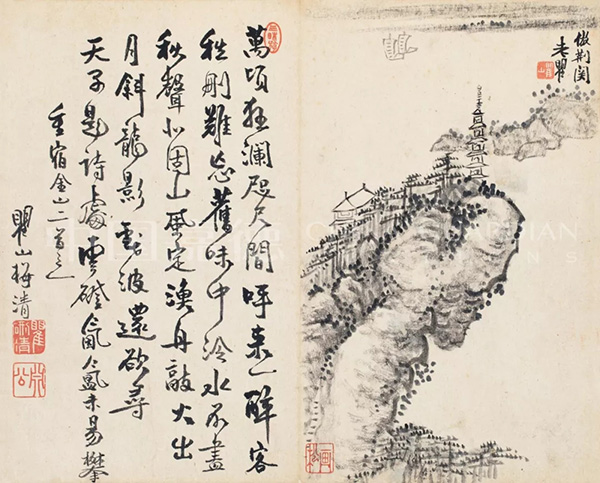 倣荊関
老瞿
萬頃狂瀾咫尺間呼来一醉客
愁刪難忘舊味中泠水不盡
秋聲北固山風定漁舟敲火出
月斜龍影動波還欲尋
天子題詩處雲磴氤氳未易攀
重宿金山二首之一
瞿山梅清